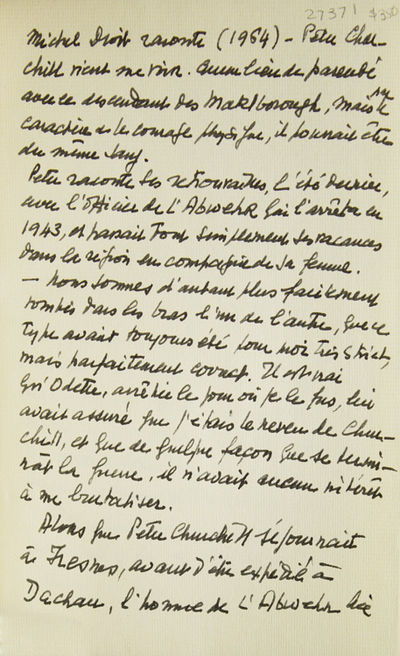 27371 $350
Michel Droit raconte (1964) - Peter Chur-
chill vient me voir. Aucun lien de parenté
avec ce descendant des Marlborough, mais par le
caractère et le courage physique, il pourrait être
du même sang.
Peter raconte ses retrouvailles, l'été dernier,
avec l'officier de l'Abwehr qui l'arrêta en
1943, et passait tout simplement ses vacances
dans la région en compagnie de sa femme.
— Nous sommes d'autant plus facilement
tombés dans les bras l'un de l'autre, que ce
type avait toujours été pour moi très strict,
mais parfaitement correct. Il est vrai
qu'Odette, arrêtée le jour où je le fus, lui
avait assuré que j'étais le neveu de Chur-
chill, et que de quelque façon que se termi-
nât la guerre, il n'avait aucun intérêt
à me brutaliser.
Alors que Peter Churchill séjournait
à Fresnes, avant d'être expédié à
Dachau, l'homme de l'Abwehr lui